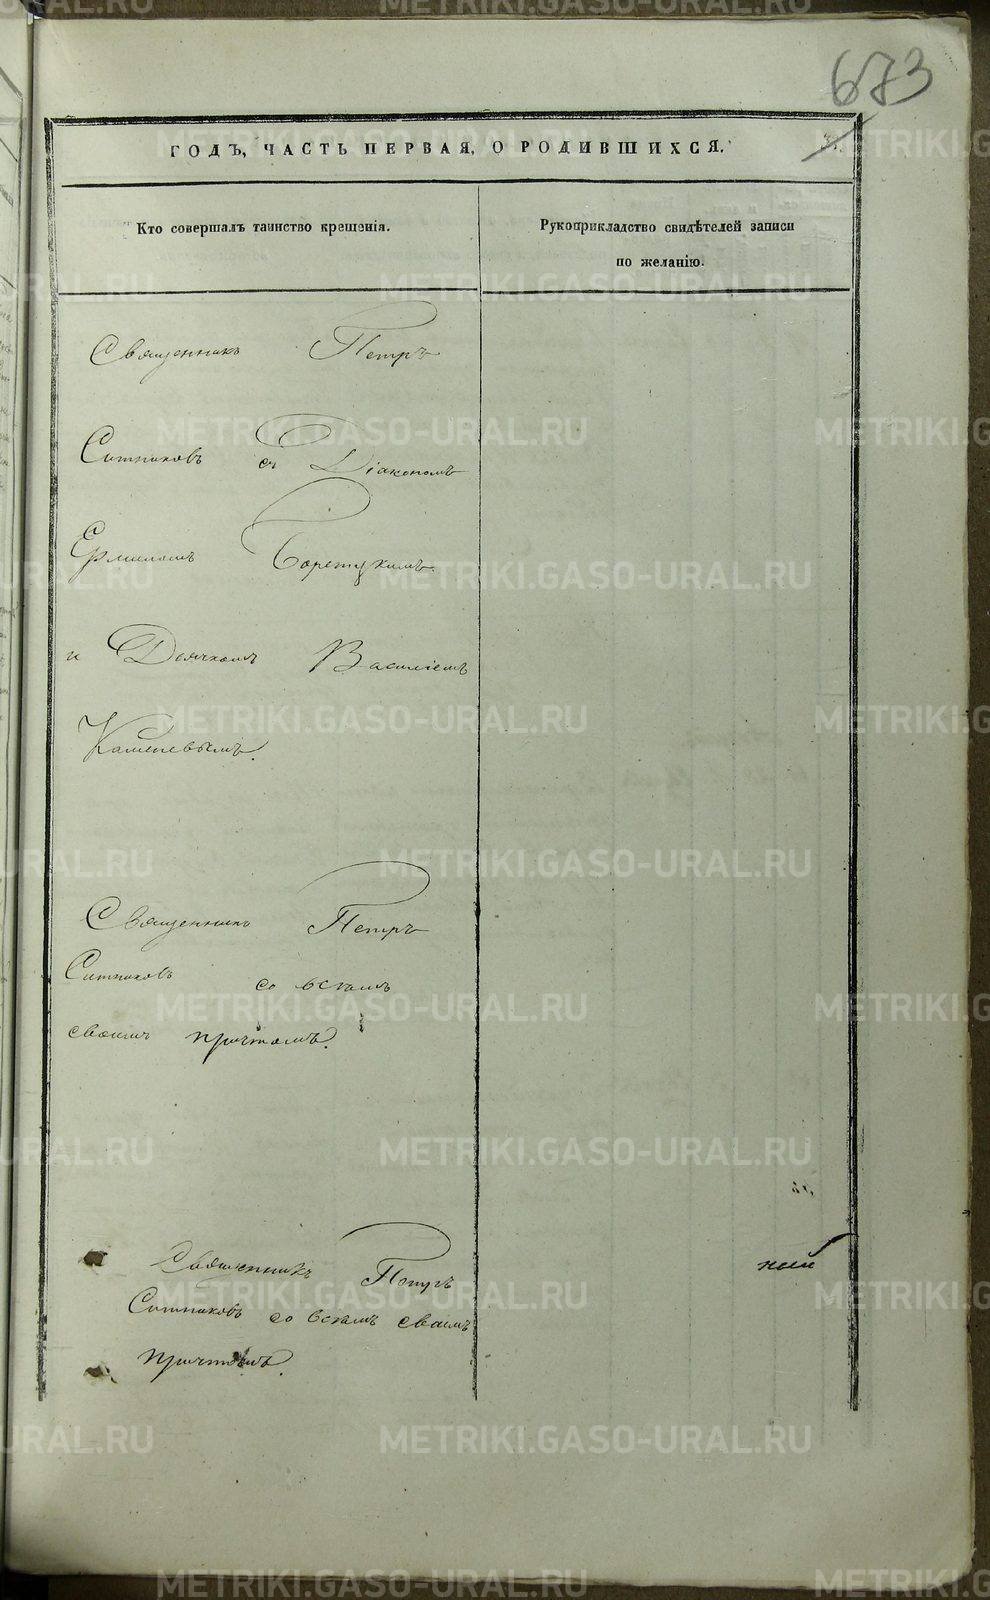 673
ГОДЪ, ЧАСТЬ ПЕРВАЯ, О РОДИВШИХСЯ.
Кто совершалъ таинство крещенія.
Рукоприкладство свидѣтелей записи
по желанію.
Священникъ Петръ
Ситниковъ съ Діакономъ
Ермиломъ Борецкимъ
и Дьячкомъ Василіемъ
Каменевымъ.
Священникъ Петръ
Ситниковъ со всѣмъ
своимъ причтомъ.
Священникъ Петръ
Ситниковъ со всѣмъ своимъ
причтомъ.
ний
METRIKI.GASO-URAL.RU